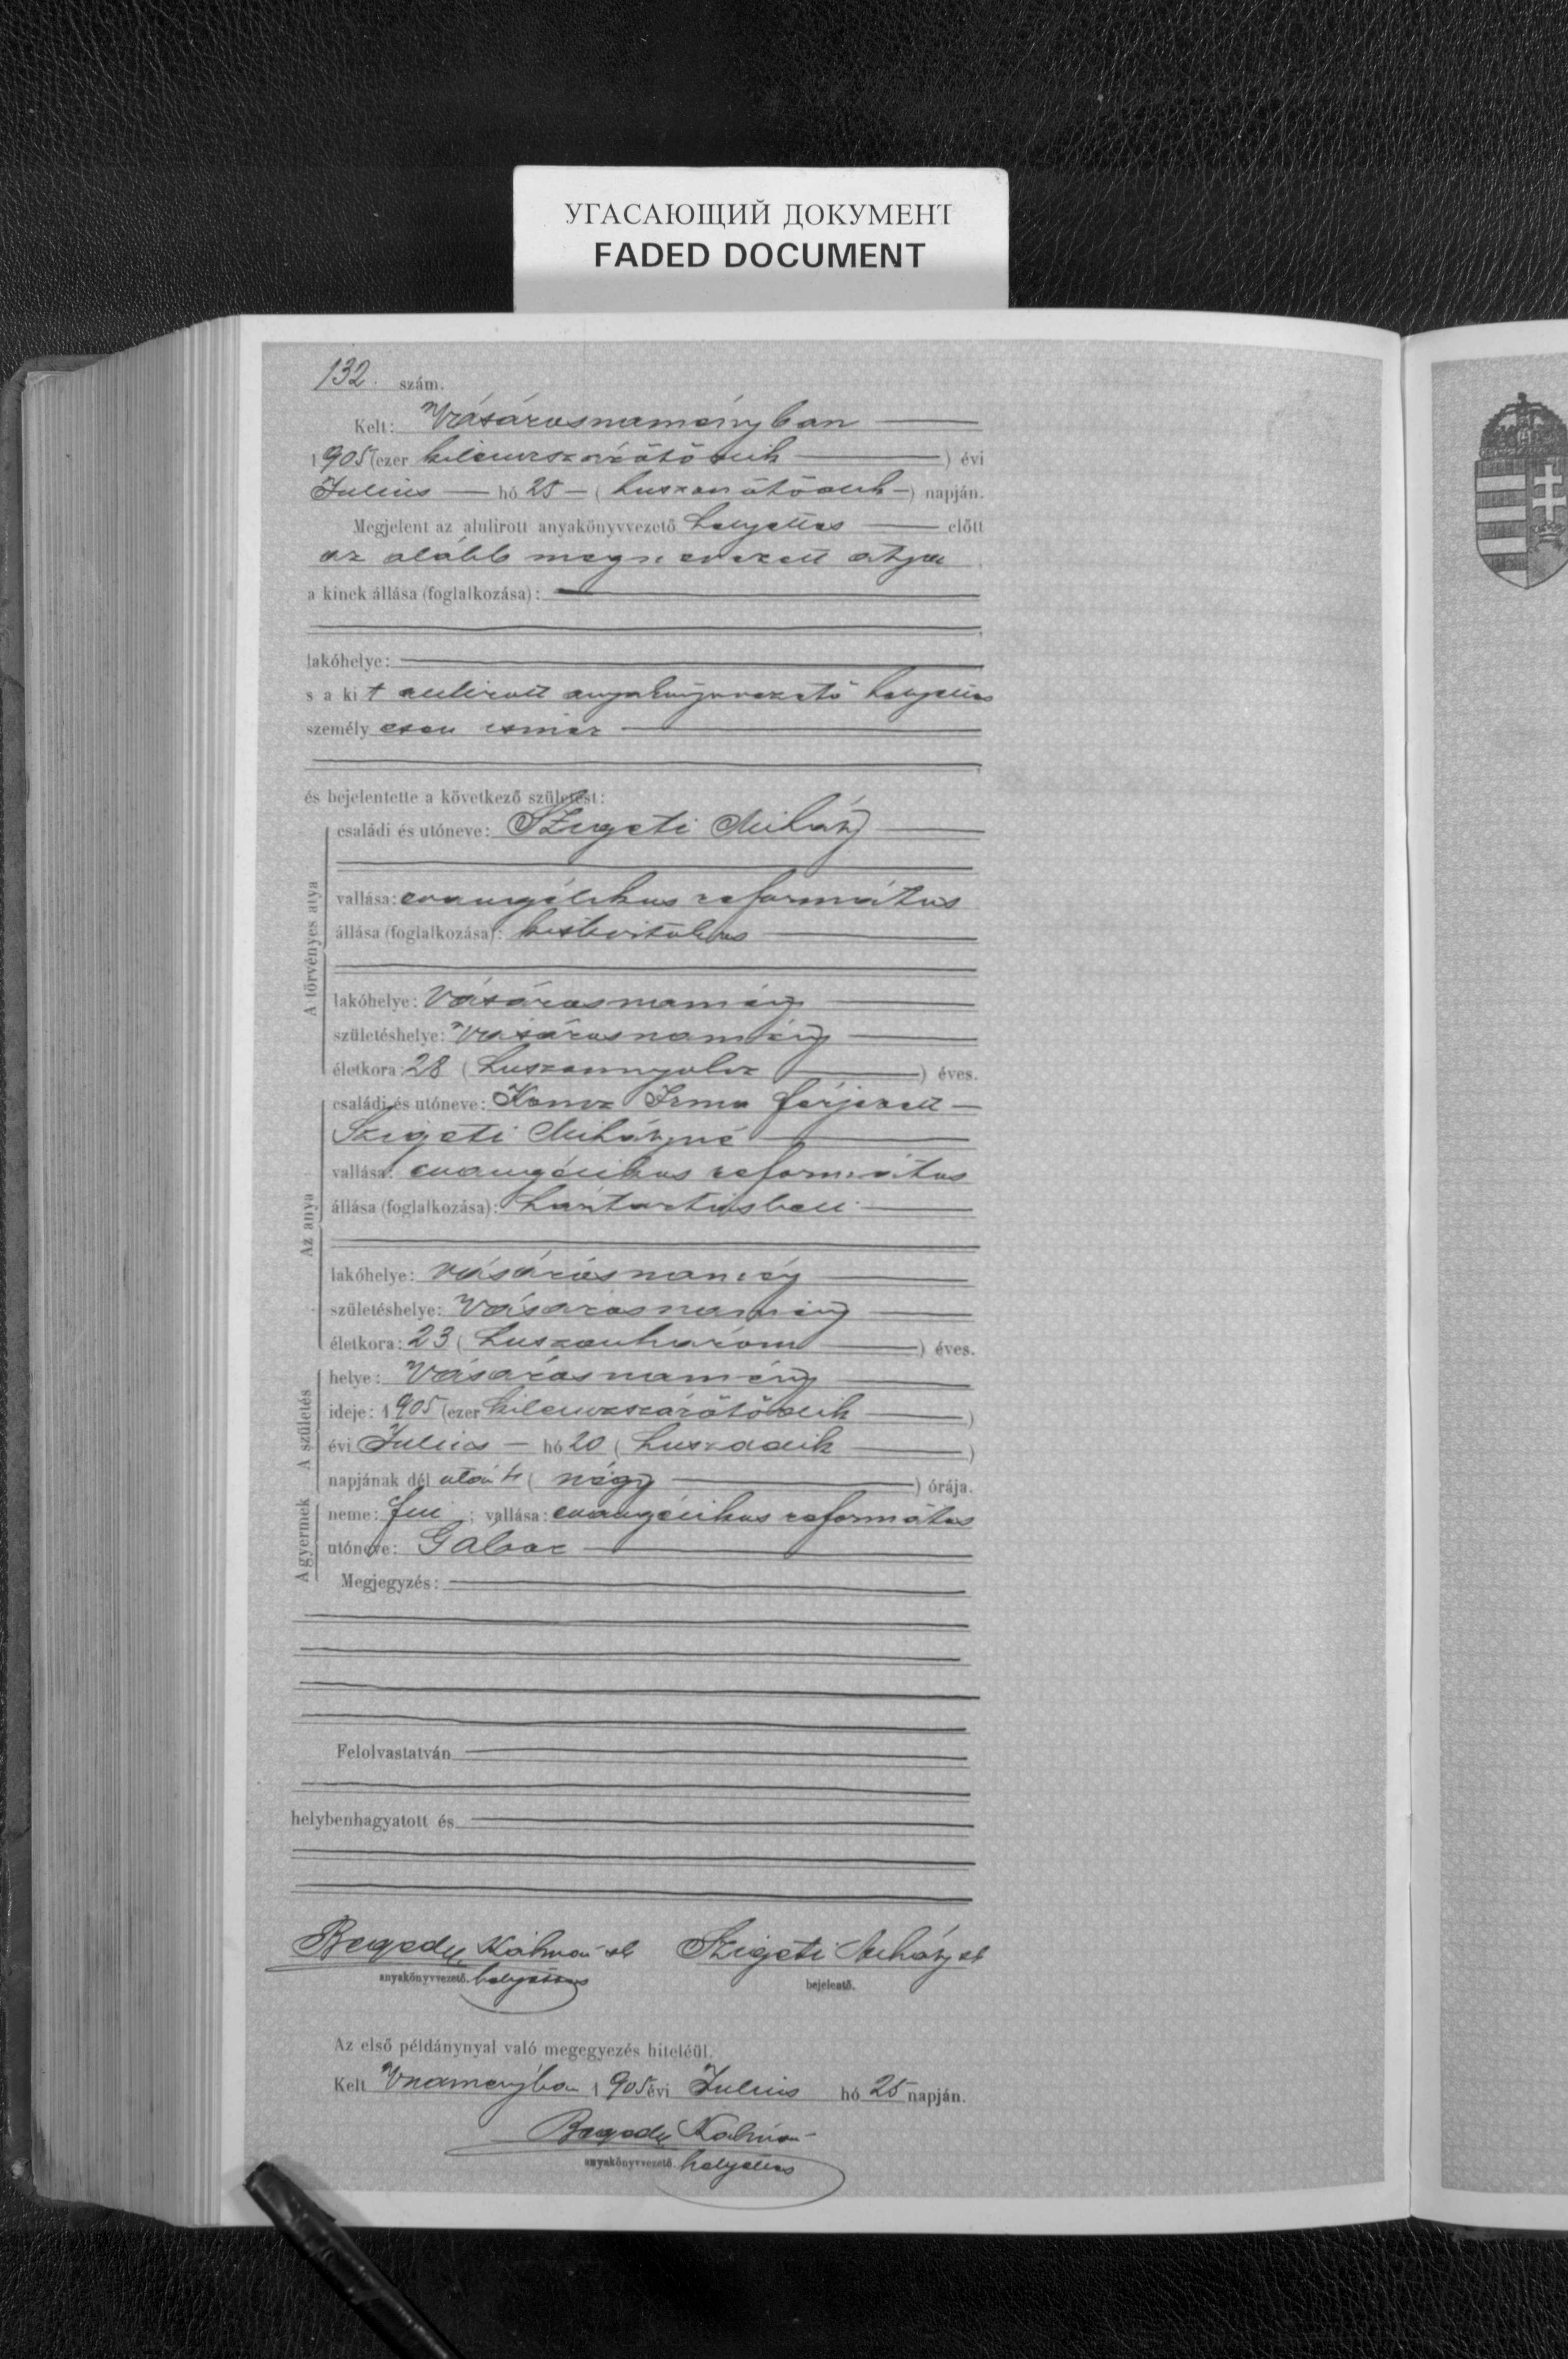 УГАСАЮЩИЙ ДОКУМЕНТ
FADED DOCUMENT
132. szám.
Kelt: Vásárosnaményban
1905 (ezer kilenczszázötödik ) évi
Julius hó 25 ( huszonötödik ) napján.
Megjelent az alulirott anyakönyvvezető helyettes előtt
az alább megnevezett atya
a kinek állása (foglalkozása):
lakóhelye:
s a kit alulirott anyakönyvvezető helyettes
személyesen ismer
és bejelentette a következő születést:
A törvényes atya
családi és utóneve: Szigeti Mihály
vallása: evangélikus református
állása (foglalkozása): kisbirtokos
lakóhelye: Vásárosnamény
születéshelye: Vásárosnamény
életkora: 28 ( huszonnyolcz ) éves.
Az anya
családi és utóneve: Koncz Irma férjezett
Szigeti Mihályné
vallása: evangélikus református
állása (foglalkozása): háztartásbeli
lakóhelye: Vásárosnamény
születéshelye: Vásárosnamény
életkora: 23 ( huszonhárom ) éves.
A születés
helye: Vásárosnamény
ideje: 1905 (ezer kilenczszázötödik )
évi Julius hó 20 ( huszadik )
napjának dél után 4 ( négy ) órája.
A gyermek
neme: fiu ; vallása: evangélikus református
utóneve: Gábor
Megjegyzés:
Felolvastatván
helybenhagyatott és
Kálmán sk Szigeti Mihály sk
anyakönyvvezető. helyettes bejelentő.
Az első példánynyal való megegyezés hiteléül.
Kelt Vnaményban 1905 évi Julius hó 25 napján.
Kálmán
anyakönyvvezető helyettes